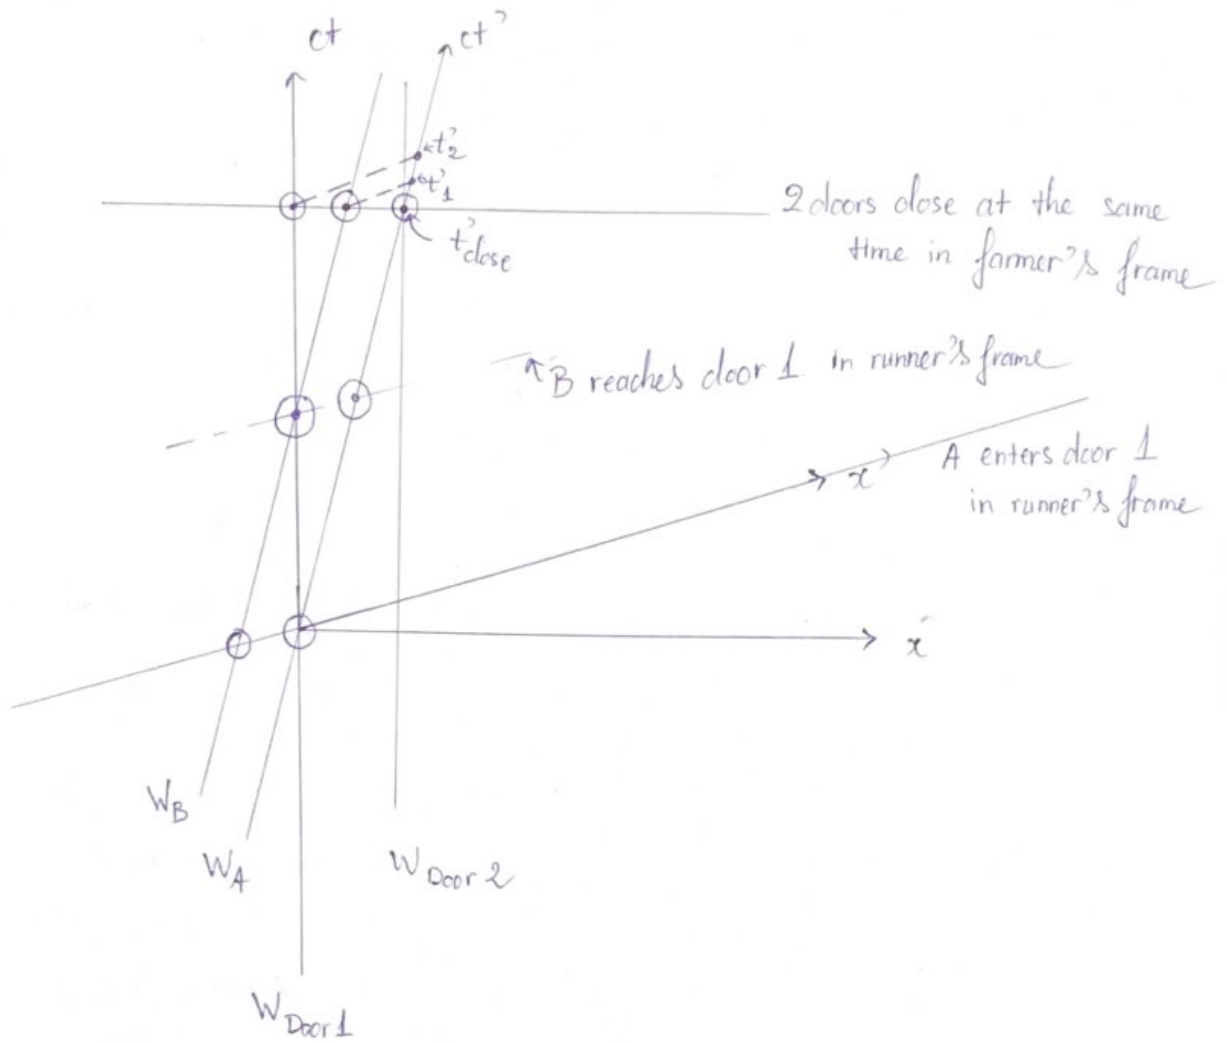 ct
ct'
t'2
t'1
2 doors close at the same
time in farmer's frame
t'close
B reaches door 1 in runner's frame
A enters door 1
in runner's frame
x'
x
WB
WA
WDoor 2
WDoor 1